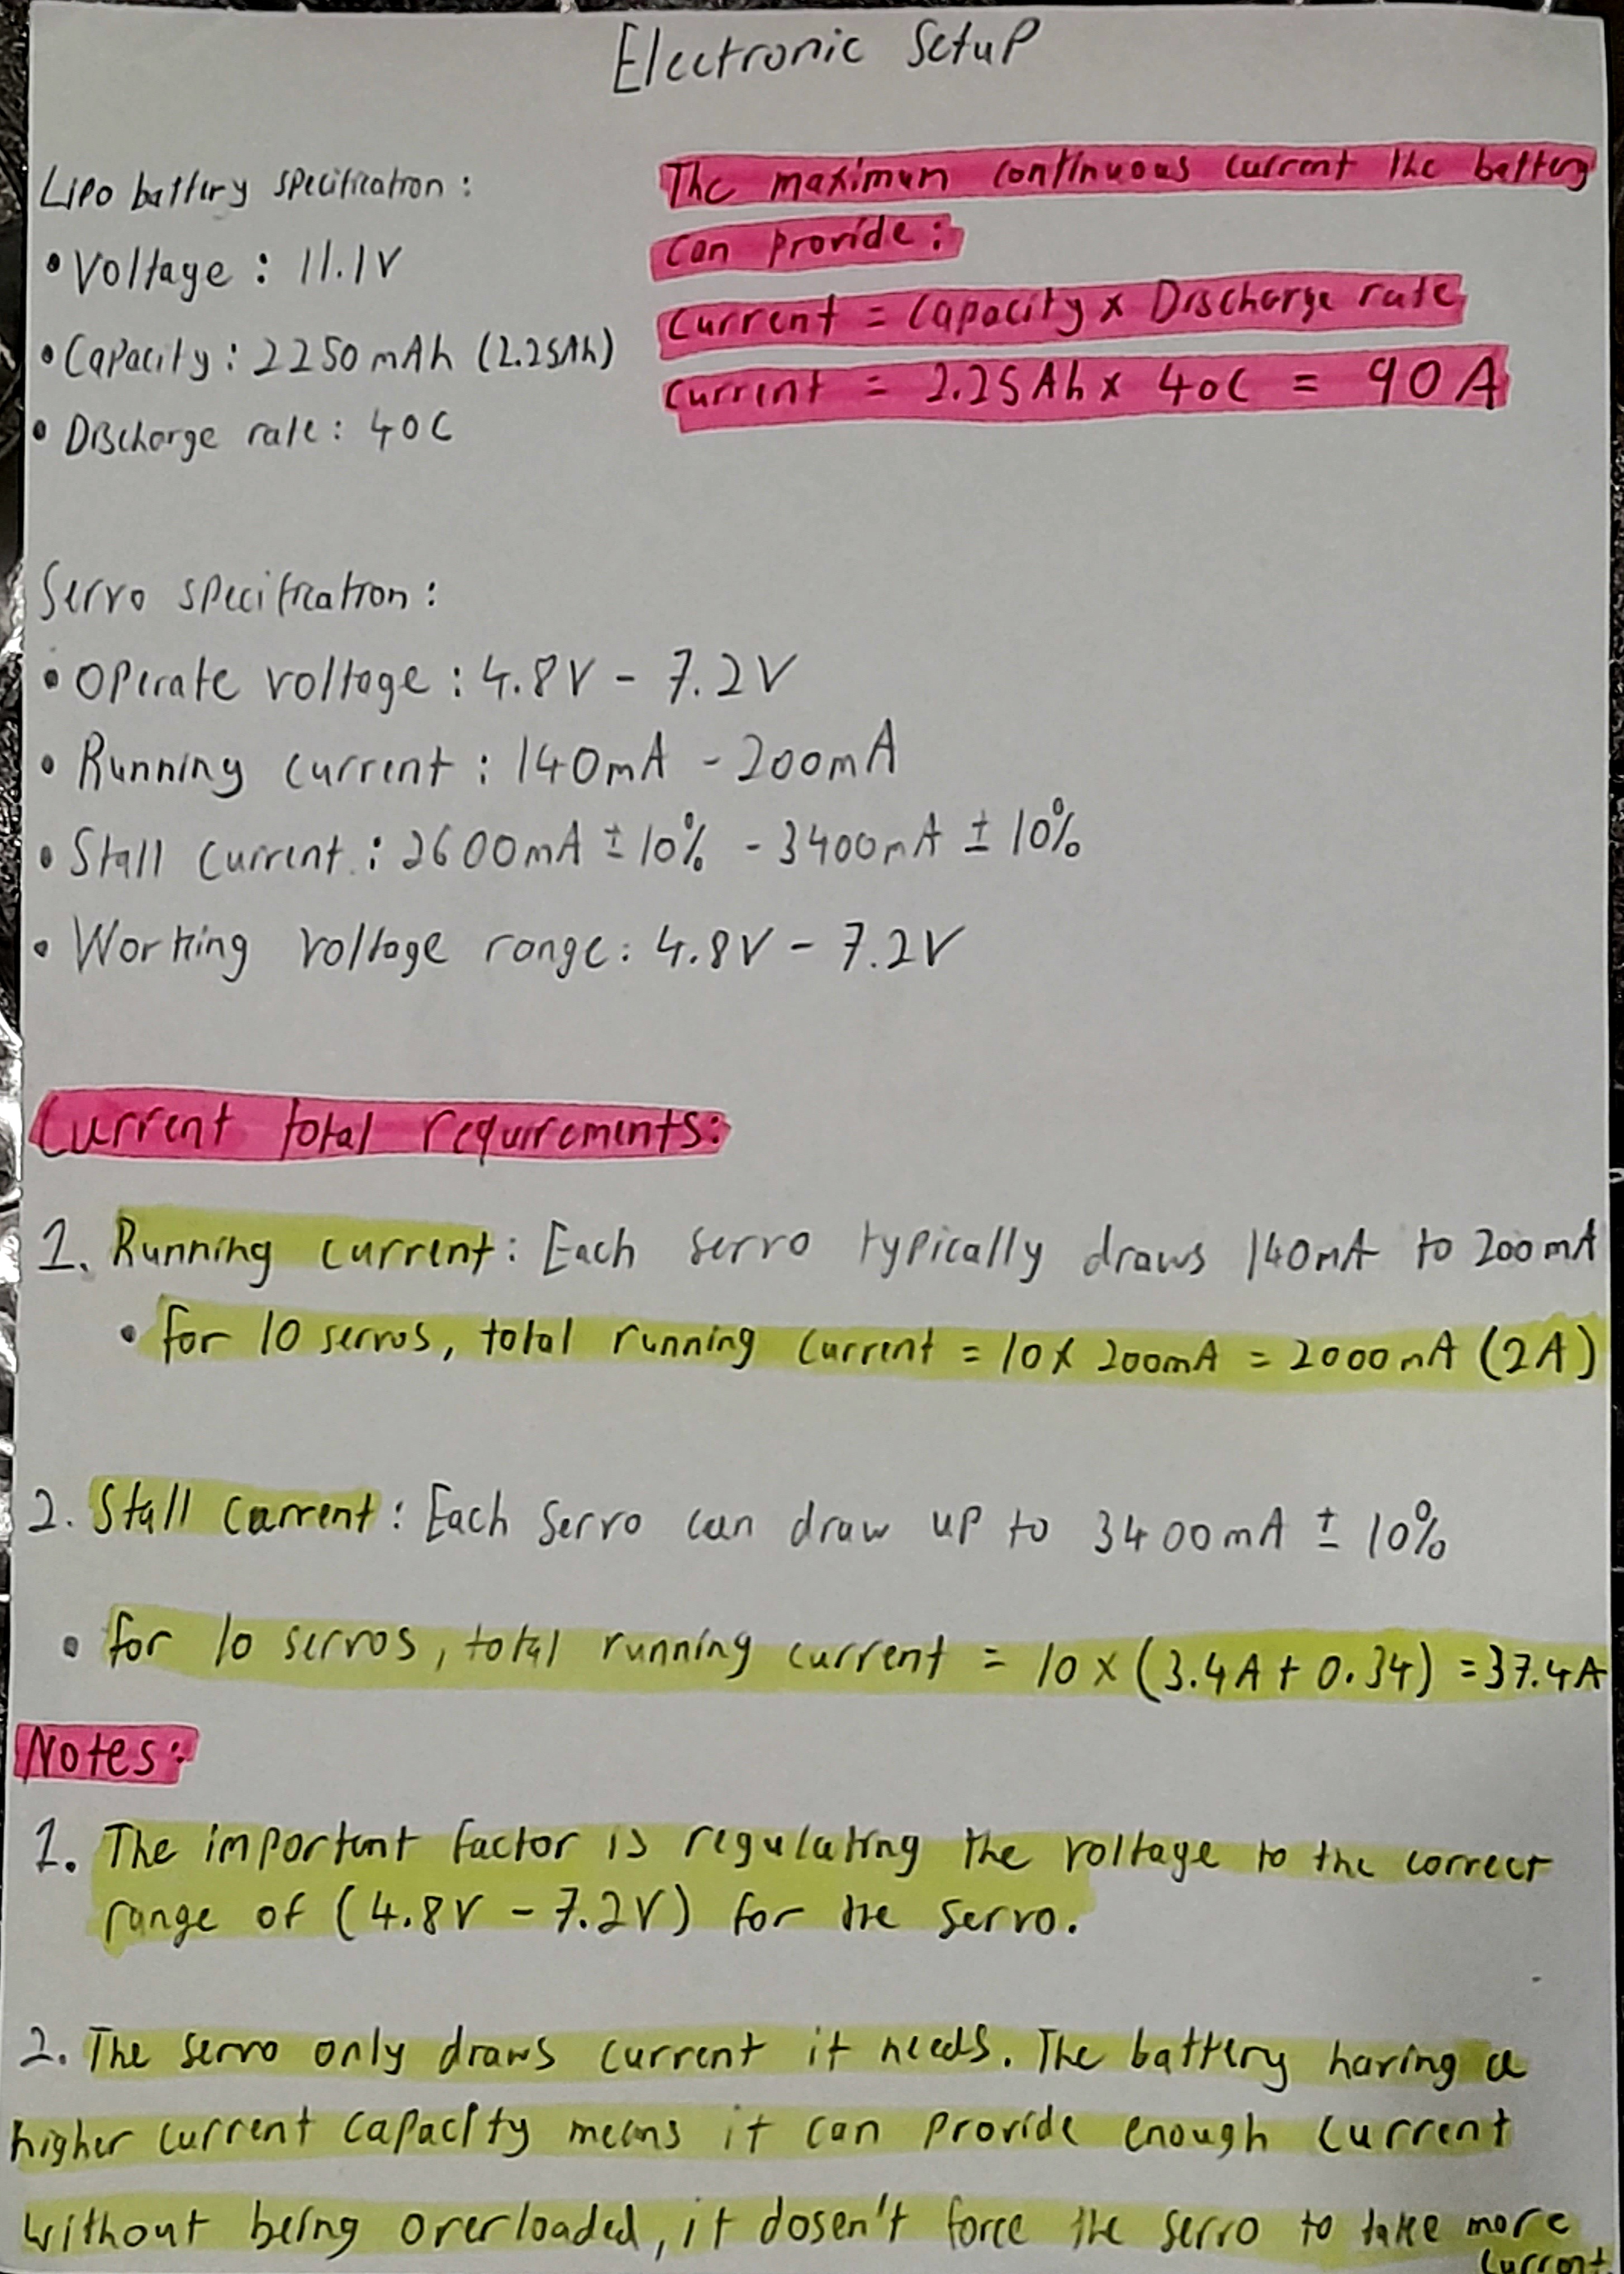 Electronic Setup
Lipo battery specification:
• Voltage: 11.1V
• Capacity: 2250mAh (2.25Ah)
• Discharge rate: 40C
The maximum continuous current the battery
can provide:
Current = Capacity x Discharge rate
Current = 2.25Ah x 40C = 90A
Servo specification:
• Operate voltage: 4.8V - 7.2V
• Running current: 140mA - 200mA
• Stall current: 2600mA ± 10% - 3400mA ± 10%
• Working voltage range: 4.8V - 7.2V
Current total requirements:
1. Running current: Each servo typically draws 140mA to 200mA
• for 10 servos, total running current = 10 x 200mA = 2000mA (2A)
2. Stall current: Each servo can draw up to 3400mA ± 10%
• for 10 servos, total running current = 10 x (3.4A + 0.34) = 37.4A
Notes:
1. The important factor is regulating the voltage to the correct
range of (4.8V - 7.2V) for the servo.
2. The servo only draws current it needs. The battery having a
higher current capacity means it can provide enough current
without being overloaded, it dosen't force the servo to take more
current